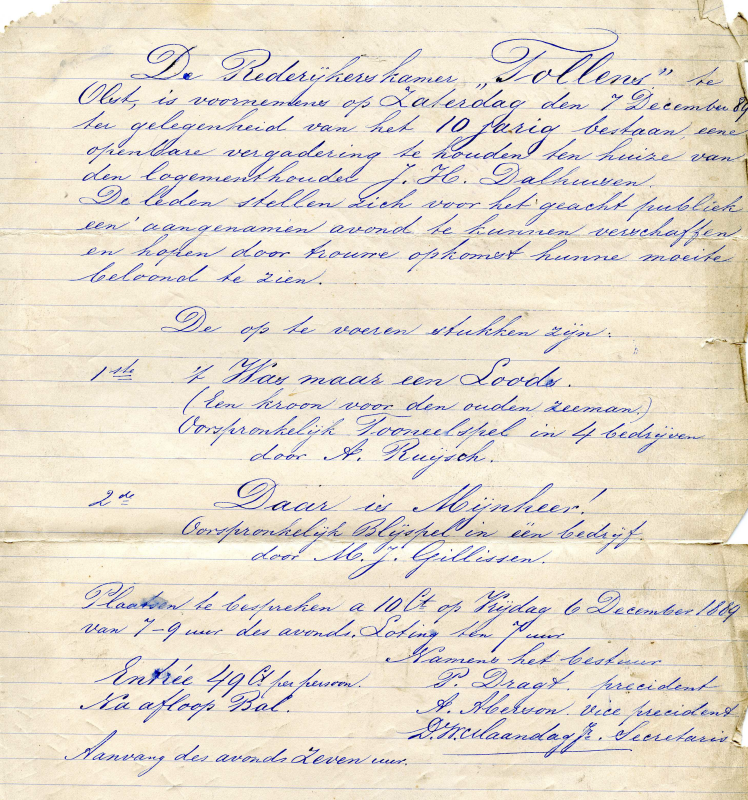 De Rederijkerskamer „Tollens" te
Olst, is voornemens op Zaterdag den 7 December 89
ter gelegenheid van het 10 jarig bestaan, eene
openbare vergadering te houden ten huize van
den logementhouder J. H. Dalhuisen.
De leden stellen zich voor het geacht publiek
een aangenamen avond te kunnen verschaffen
en hopen door trouwe opkomst hunne moeite
beloond te zien.
De op te voeren stukken zijn:
1ste 't Was maar een Loods.
(Een kroon voor den ouden zeeman.)
Oorspronkelijk Tooneelspel in 4 bedrijven
door A. Ruijsch.
2de Daar is Mijnheer!
Oorspronkelijk Blijspel in één bedrijf.
door M. J. Gillissen.
Plaatsen te bespreken a 10 Ct op Vrijdag 6 December 1889
van 7-9 uur des avonds. Loting ten 7 uur
Namens het bestuur
Entrée 49 Ct per persoon. P. Dragt. precident
Na afloop Bal. A. Aberson. vice precident
D. W. Maandag Jr. Secretaris
Aanvang des avonds Zeven uur.